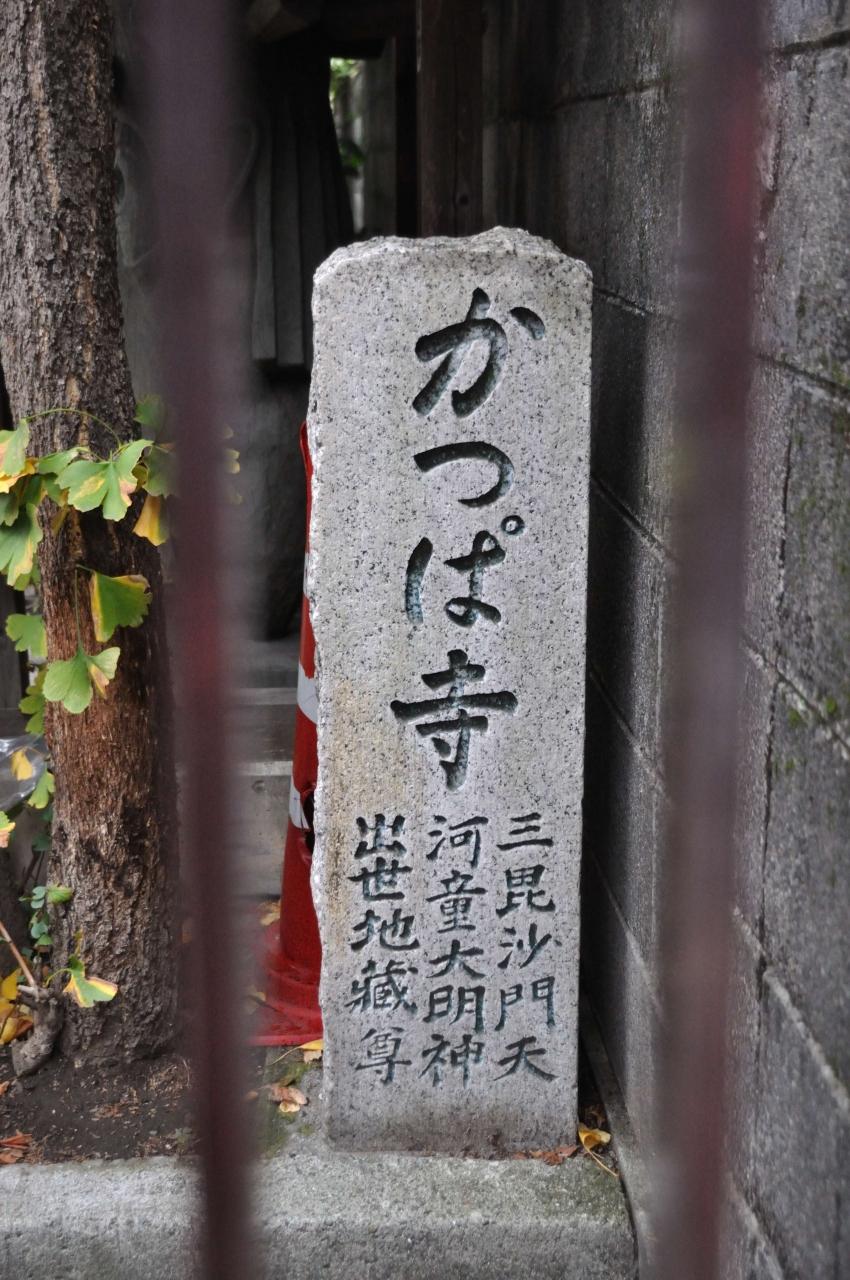 かっぱ寺
三毘沙門天
河童大明神
出世地藏尊